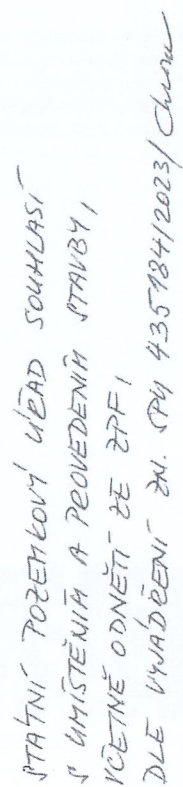 STÁTNÍ POZEMKOVÝ ÚŘAD SOUHLASÍ
S UMÍSTĚNÍM A PROVEDENÍM STAVBY,
VČETNĚ ODNĚTÍ ZE ZPF,
DLE VYJÁDŘENÍ ZN. SPU 435184/2023/